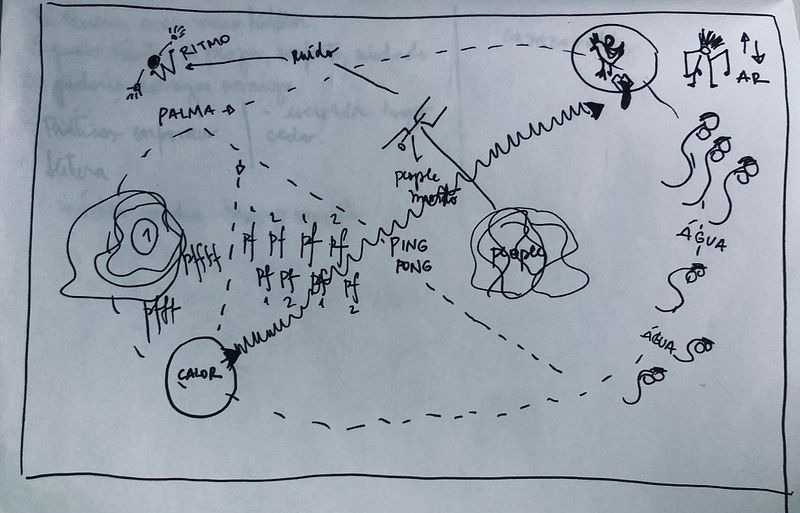 RITMO
Ruído
AR
PALMA
people
1
pffff
pfff
1 2 1 2
pf pf pf pf
pf pf pf pf
1 2 1 2
PING
PONG
people
ÁGUA
ÁGUA
CALOR